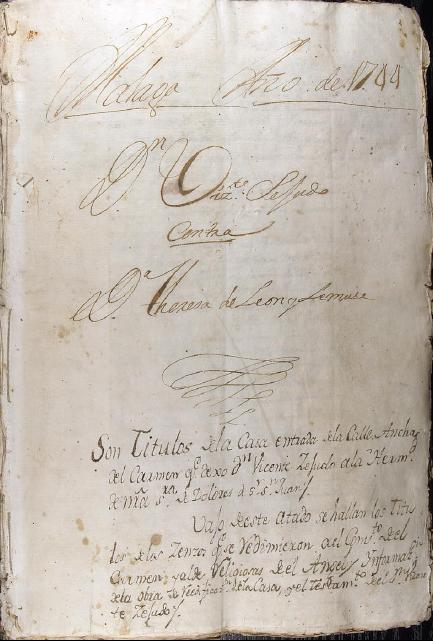 Malaga Año de 1744
Dn Vizte Zejudo
Contra
Da Theresa de Leon y Lemus
Son Titulos de la Casa entrada de la Calle Ancha
del Carmen qe dexo Dn Vicente Zejudo a la Hermd
de nra sra de Dolores de sr sn Juan
Vajo de este Atado se hallan los Titu
los de los Zenzos qe se Redimieron al Convto del
Carmen y al de Religiosas del Angel, Informazn
de la obra de la Casa, y el Testamto del Dn Vizen
te Zejudo